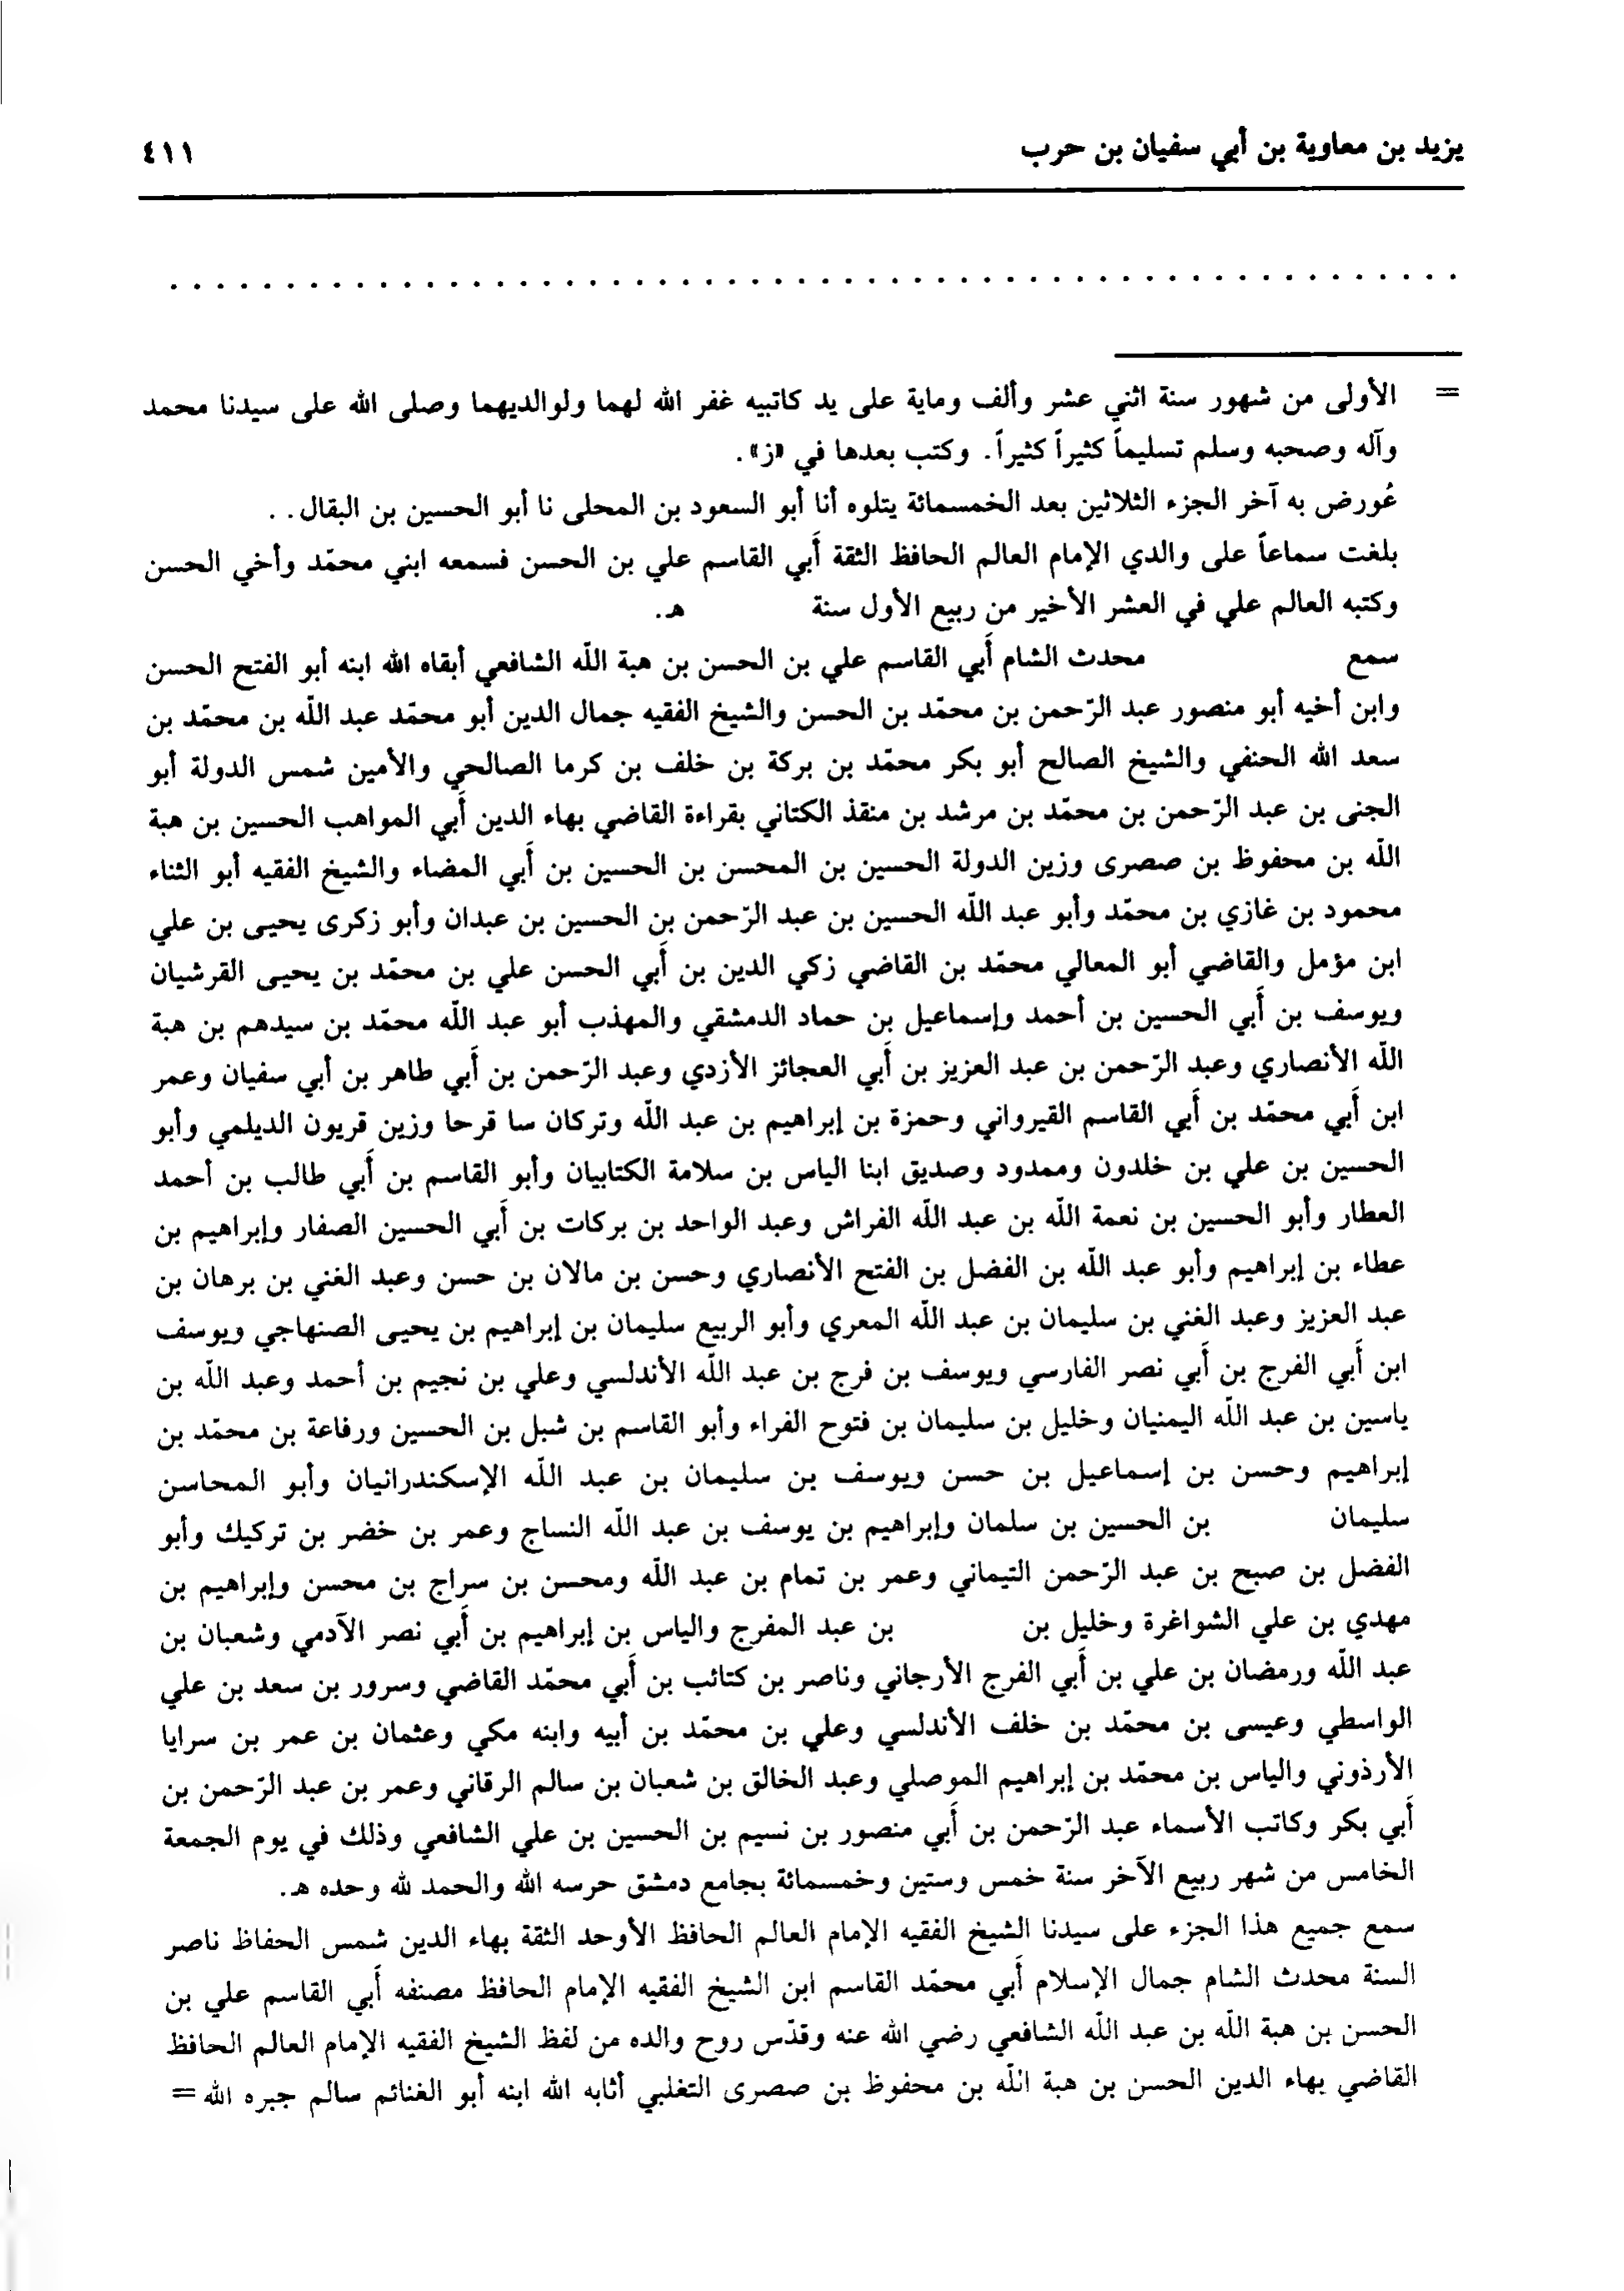 يزيد بن معاوية بن أبي سفيان بن حرب ٤١١
. . . . . . . . . . . . . . . . . . . . . . . . . . . . . . . . . . . . . . . . . . . . . . . . . . . . . . . .
= الأولى من شهور سنة اثني عشر وألف وماية على يد كاتبيه غفر الله لهما ولوالديهما وصلى الله على سيدنا محمد
وآله وصحبه وسلم تسليماً كثيراً كثيراً. وكتب بعدها في «ز».
عُورض به آخر الجزء الثلاثين بعد الخمسمائة يتلوه أنا أبو السعود بن المحلى نا أبو الحسين بن البقال. .
بلغت سماعاً على والدي الإمام العالم الحافظ الثقة أَبي القاسم علي بن الحسن فسمعه ابني محمّد وأخي الحسن
وكتبه العالم علي في العشر الأخير من ربيع الأول سنة هـ.
سمع محدث الشام أَبي القاسم علي بن الحسن بن هبة اللّه الشافعي أبقاه الله ابنه أبو الفتح الحسن
وابن أخيه أبو منصور عبد الرّحمن بن محمّد بن الحسن والشيخ الفقيه جمال الدين أبو محمّد عبد اللّه بن محمّد بن
سعد الله الحنفي والشيخ الصالح أبو بكر محمّد بن بركة بن خلف بن كرما الصالحي والأمين شمس الدولة أبو
الجنى بن عبد الرّحمن بن محمّد بن مرشد بن منقذ الكتاني بقراءة القاضي بهاء الدين أَبي المواهب الحسين بن هبة
اللّه بن محفوظ بن صصرى وزين الدولة الحسين بن المحسن بن الحسين بن أَبي المضاء والشيخ الفقيه أبو الثناء
محمود بن غازي بن محمّد وأبو عبد اللّه الحسين بن عبد الرّحمن بن الحسين بن عبدان وأبو زكرى يحيى بن علي
ابن مؤمل والقاضي أبو المعالي محمّد بن القاضي زكي الدين بن أَبي الحسن علي بن محمّد بن يحيى القرشيان
ويوسف بن أَبي الحسين بن أحمد وإسماعيل بن حماد الدمشقي والمهذب أبو عبد اللّه محمّد بن سيدهم بن هبة
اللّه الأنصاري وعبد الرّحمن بن عبد العزيز بن أَبي العجائز الأزدي وعبد الرّحمن بن أَبي طاهر بن أبي سفيان وعمر
ابن أَبي محمّد بن أَبي القاسم القيرواني وحمزة بن إبراهيم بن عبد اللّه وتركان سا قرحا وزين قريون الديلمي وأبو
الحسين بن علي بن خلدون وممدود وصديق ابنا الياس بن سلامة الكتابيان وأبو القاسم بن أَبي طالب بن أحمد
العطار وأبو الحسين بن نعمة اللّه بن عبد اللّه الفراش وعبد الواحد بن بركات بن أَبي الحسين الصفار وإبراهيم بن
عطاء بن إبراهيم وأبو عبد اللّه بن الفضل بن الفتح الأنصاري وحسن بن مالان بن حسن وعبد الغني بن برهان بن
عبد العزيز وعبد الغني بن سليمان بن عبد اللّه المعري وأبو الربيع سليمان بن إبراهيم بن يحيى الصنهاجي ويوسف
ابن أَبي الفرج بن أَبي نصر الفارسي ويوسف بن فرج بن عبد اللّه الأندلسي وعلي بن نجيم بن أحمد وعبد اللّه بن
ياسين بن عبد اللّه اليمنيان وخليل بن سليمان بن فتوح الفراء وأبو القاسم بن شبل بن الحسين ورفاعة بن محمّد بن
إبراهيم وحسن بن إسماعيل بن حسن ويوسف بن سليمان بن عبد اللّه الإسكندرانيان وأبو المحاسن
سليمان بن الحسين بن سلمان وإبراهيم بن يوسف بن عبد اللّه النساج وعمر بن خضر بن تركيك وأبو
الفضل بن صبح بن عبد الرّحمن التيماني وعمر بن تمام بن عبد اللّه ومحسن بن سراج بن محسن وإبراهيم بن
مهدي بن علي الشواغرة وخليل بن بن عبد المفرج والياس بن إبراهيم بن أَبي نصر الآدمي وشعبان بن
عبد اللّه ورمضان بن علي بن أَبي الفرج الأرجاني وناصر بن كتائب بن أَبي محمّد القاضي وسرور بن سعد بن علي
الواسطي وعيسى بن محمّد بن خلف الأندلسي وعلي بن محمّد بن أبيه وابنه مكي وعثمان بن عمر بن سرايا
الأرذوني والياس بن محمّد بن إبراهيم الموصلي وعبد الخالق بن شعبان بن سالم الرقاني وعمر بن عبد الرّحمن بن
أَبي بكر وكاتب الأسماء عبد الرّحمن بن أَبي منصور بن نسيم بن الحسين بن علي الشافعي وذلك في يوم الجمعة
الخامس من شهر ربيع الآخر سنة خمس وستين وخمسمائة بجامع دمشق حرسه الله والحمد لله وحده هـ.
سمع جميع هذا الجزء على سيدنا الشيخ الفقيه الإمام العالم الحافظ الأوحد الثقة بهاء الدين شمس الحفاظ ناصر
السنة محدث الشام جمال الإسلام أَبي محمّد القاسم ابن الشيخ الفقيه الإمام الحافظ مصنفه أَبي القاسم علي بن
الحسن بن هبة اللّه بن عبد اللّه الشافعي رضي الله عنه وقدّس روح والده من لفظ الشيخ الفقيه الإمام العالم الحافظ
القاضي بهاء الدين الحسن بن هبة اللّه بن محفوظ بن صصرى التغلبي أثابه الله ابنه أبو الغنائم سالم جبره الله =